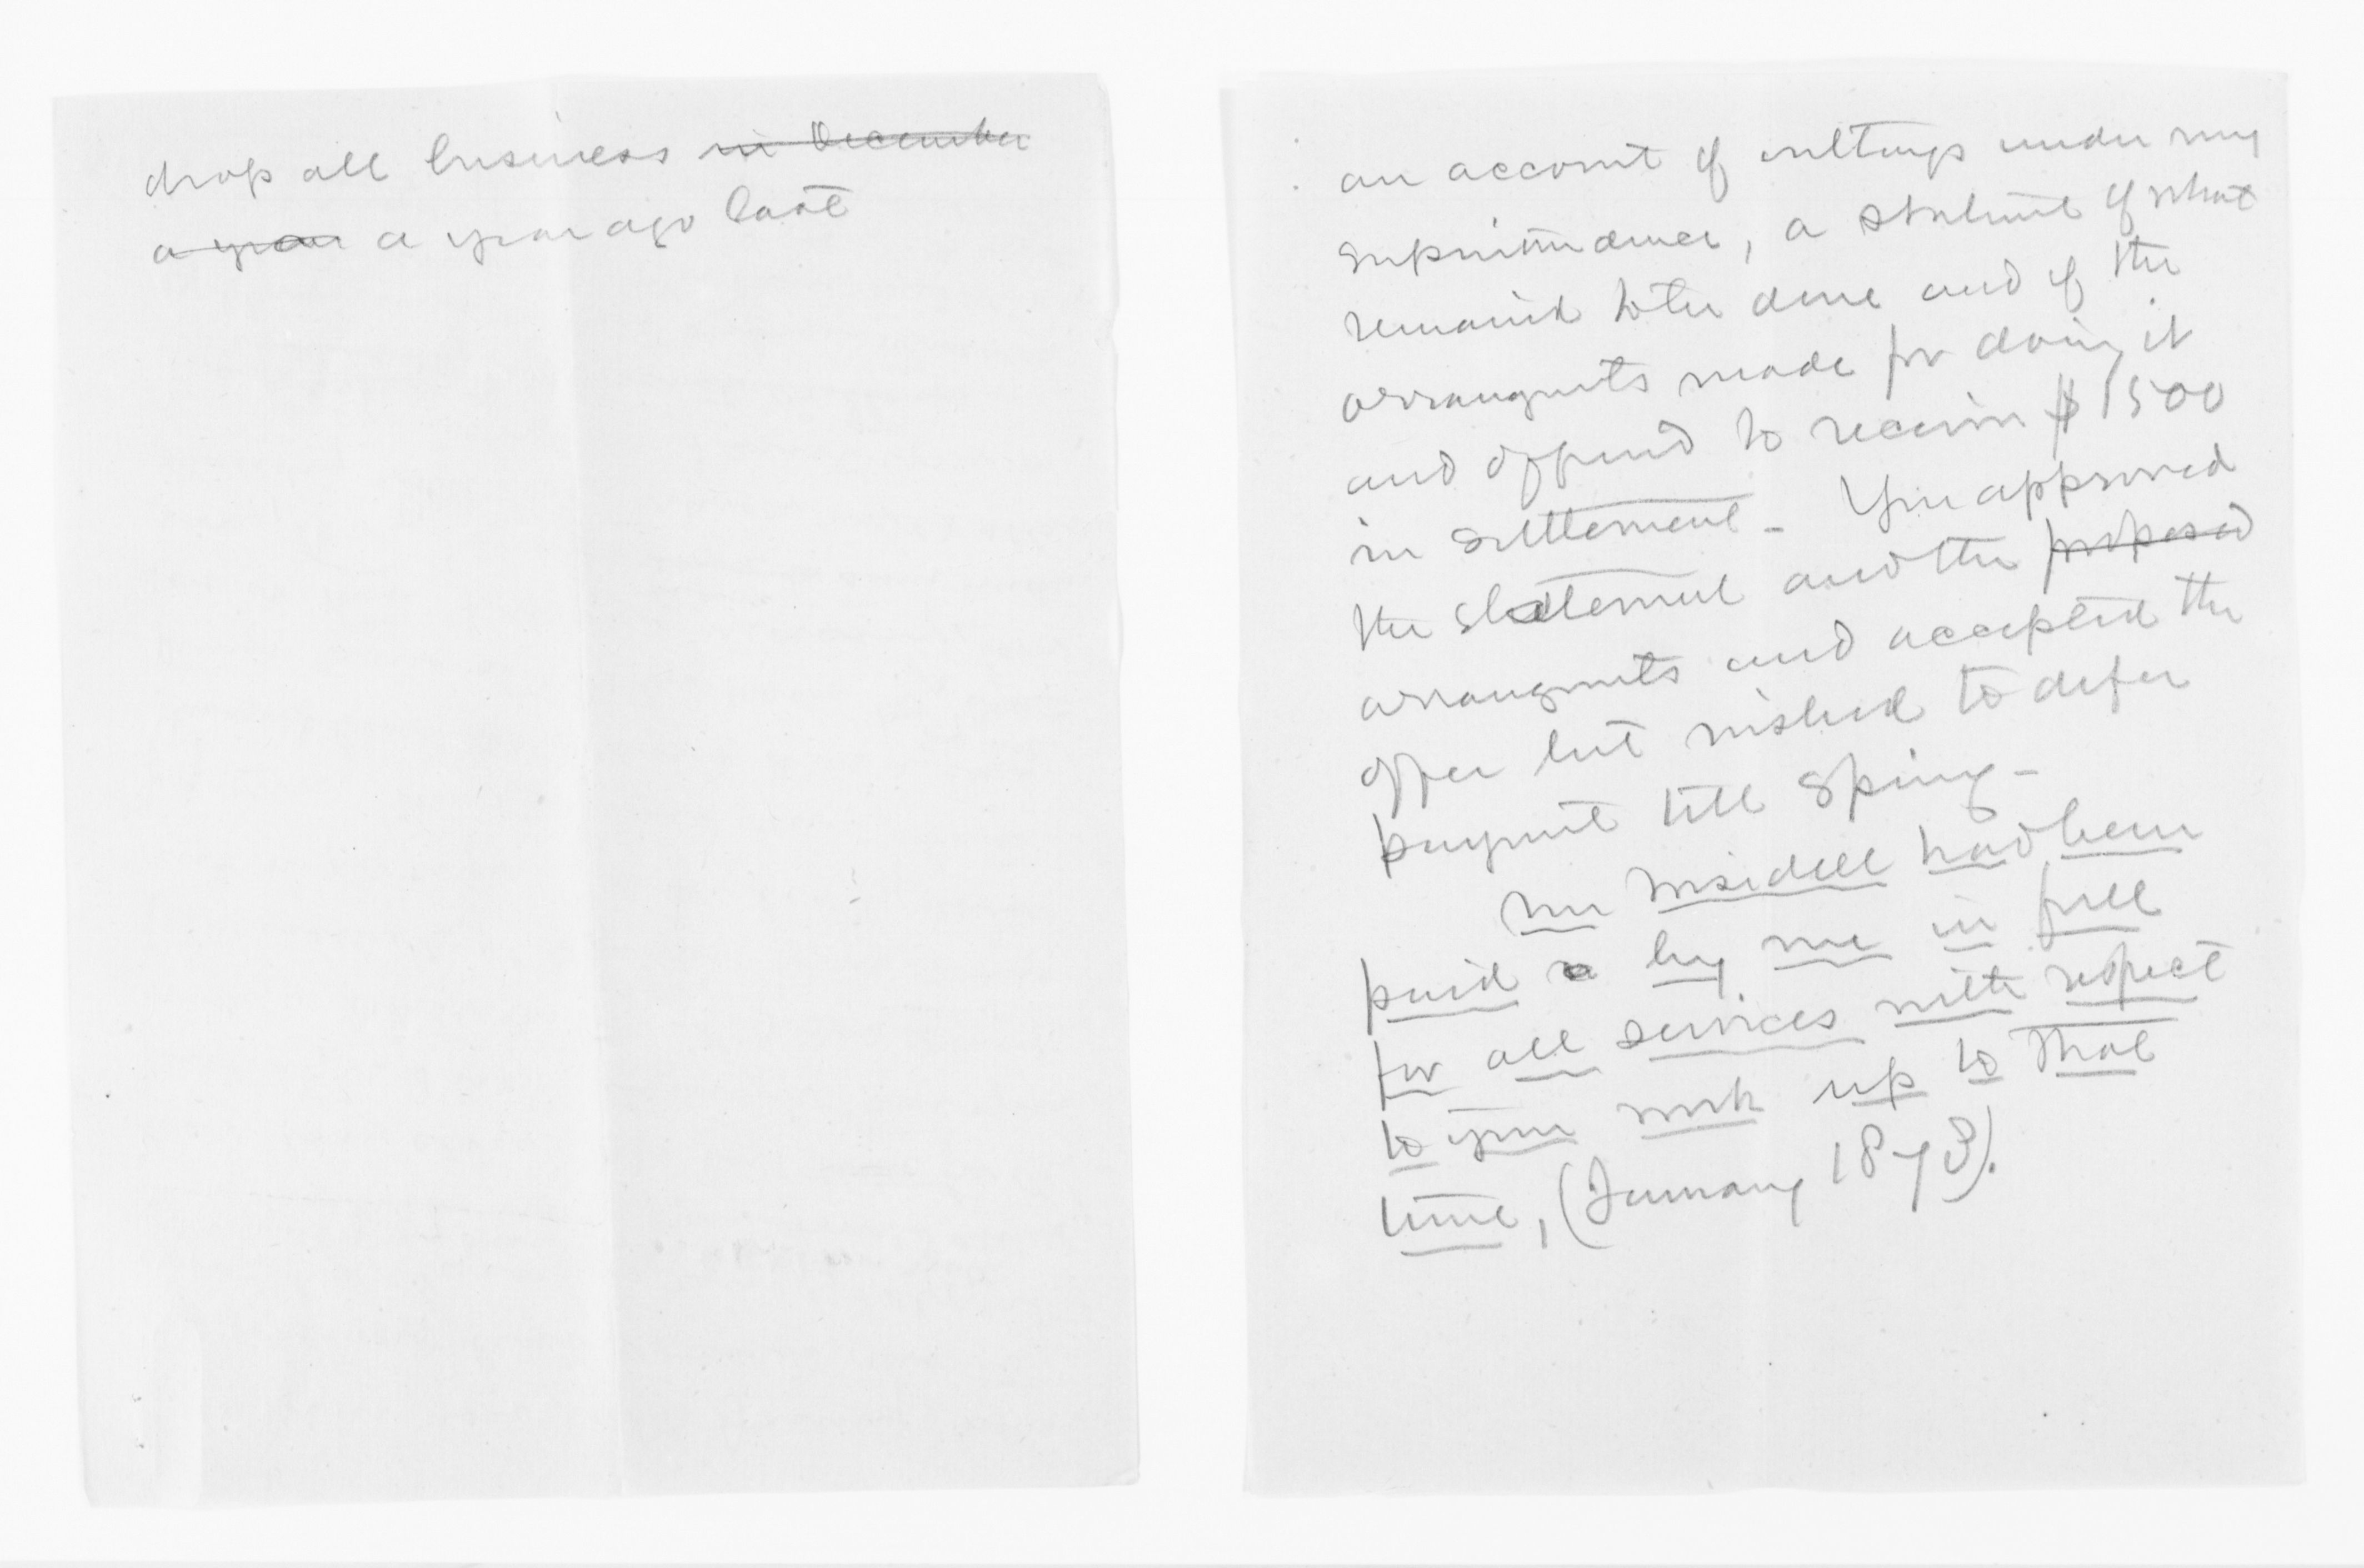 drop all business in December
a year a year ago last
an account of outlays under my
superintendence, a statement of what
remained to be done and of the
arrangments made for doing it
and offered to receive $1500
in settlement - You approved
the statement and the proposed
arrangments and accepted the
offer but wished to defer
payment till Spring -
Mr Wisedell had been
paid by me in full
for all services with respect
to your work up to that
time, (January 1873).